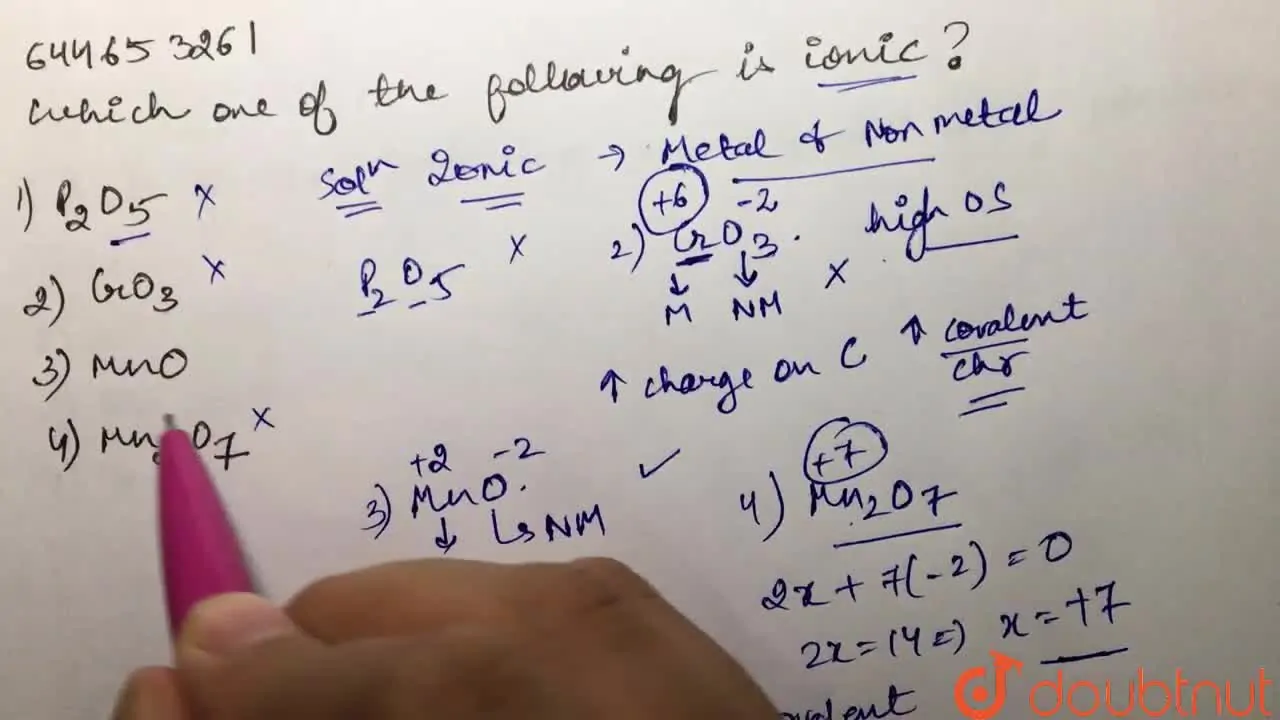 6446532261
Which one of the following is ionic?
1) P2O5 x
2) CrO3 x
3) MnO
4) Mn2O7 x
Soln Ionic → Metal & Non metal
P2O5 x
+6 -2
2) CrO3. high OS
M NM x
↑ charge on C ↑ covalent
chr
+2 -2
3) MnO. ✓
↓ ↳ NM
+7
4) Mn2O7
2x + 7(-2) = 0
2x = 14 => x = +7
doubtnut